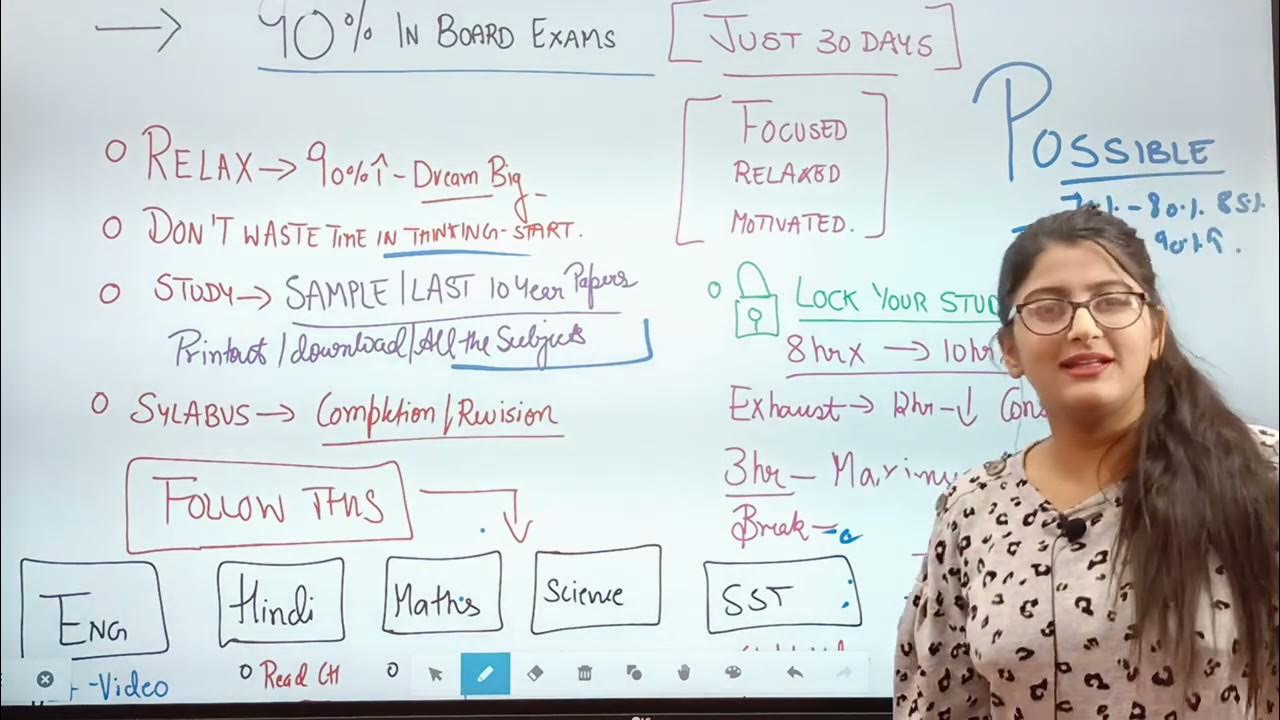 → 90% IN BOARD EXAMS [JUST 30 DAYS]
[FOCUSED
RELAXED
MOTIVATED.]
POSSIBLE
70% - 80% 85%
90%↑.
○ RELAX → 90%↑ - Dream Big
○ DON'T WASTE TIME IN THINKING - START.
○ STUDY → SAMPLE / LAST 10 Year Papers
Printout / download / All the Subjects
○ SYLABUS → Completion / Revision
FOLLOW THIS
○ LOCK YOUR STUD
8hrx → 10hr
Exhaust → 12hr - ↓ Con
3hr - Maximu
Break -
ENG
Hindi
Maths
Science
SST
- Video
○ Read CH
○